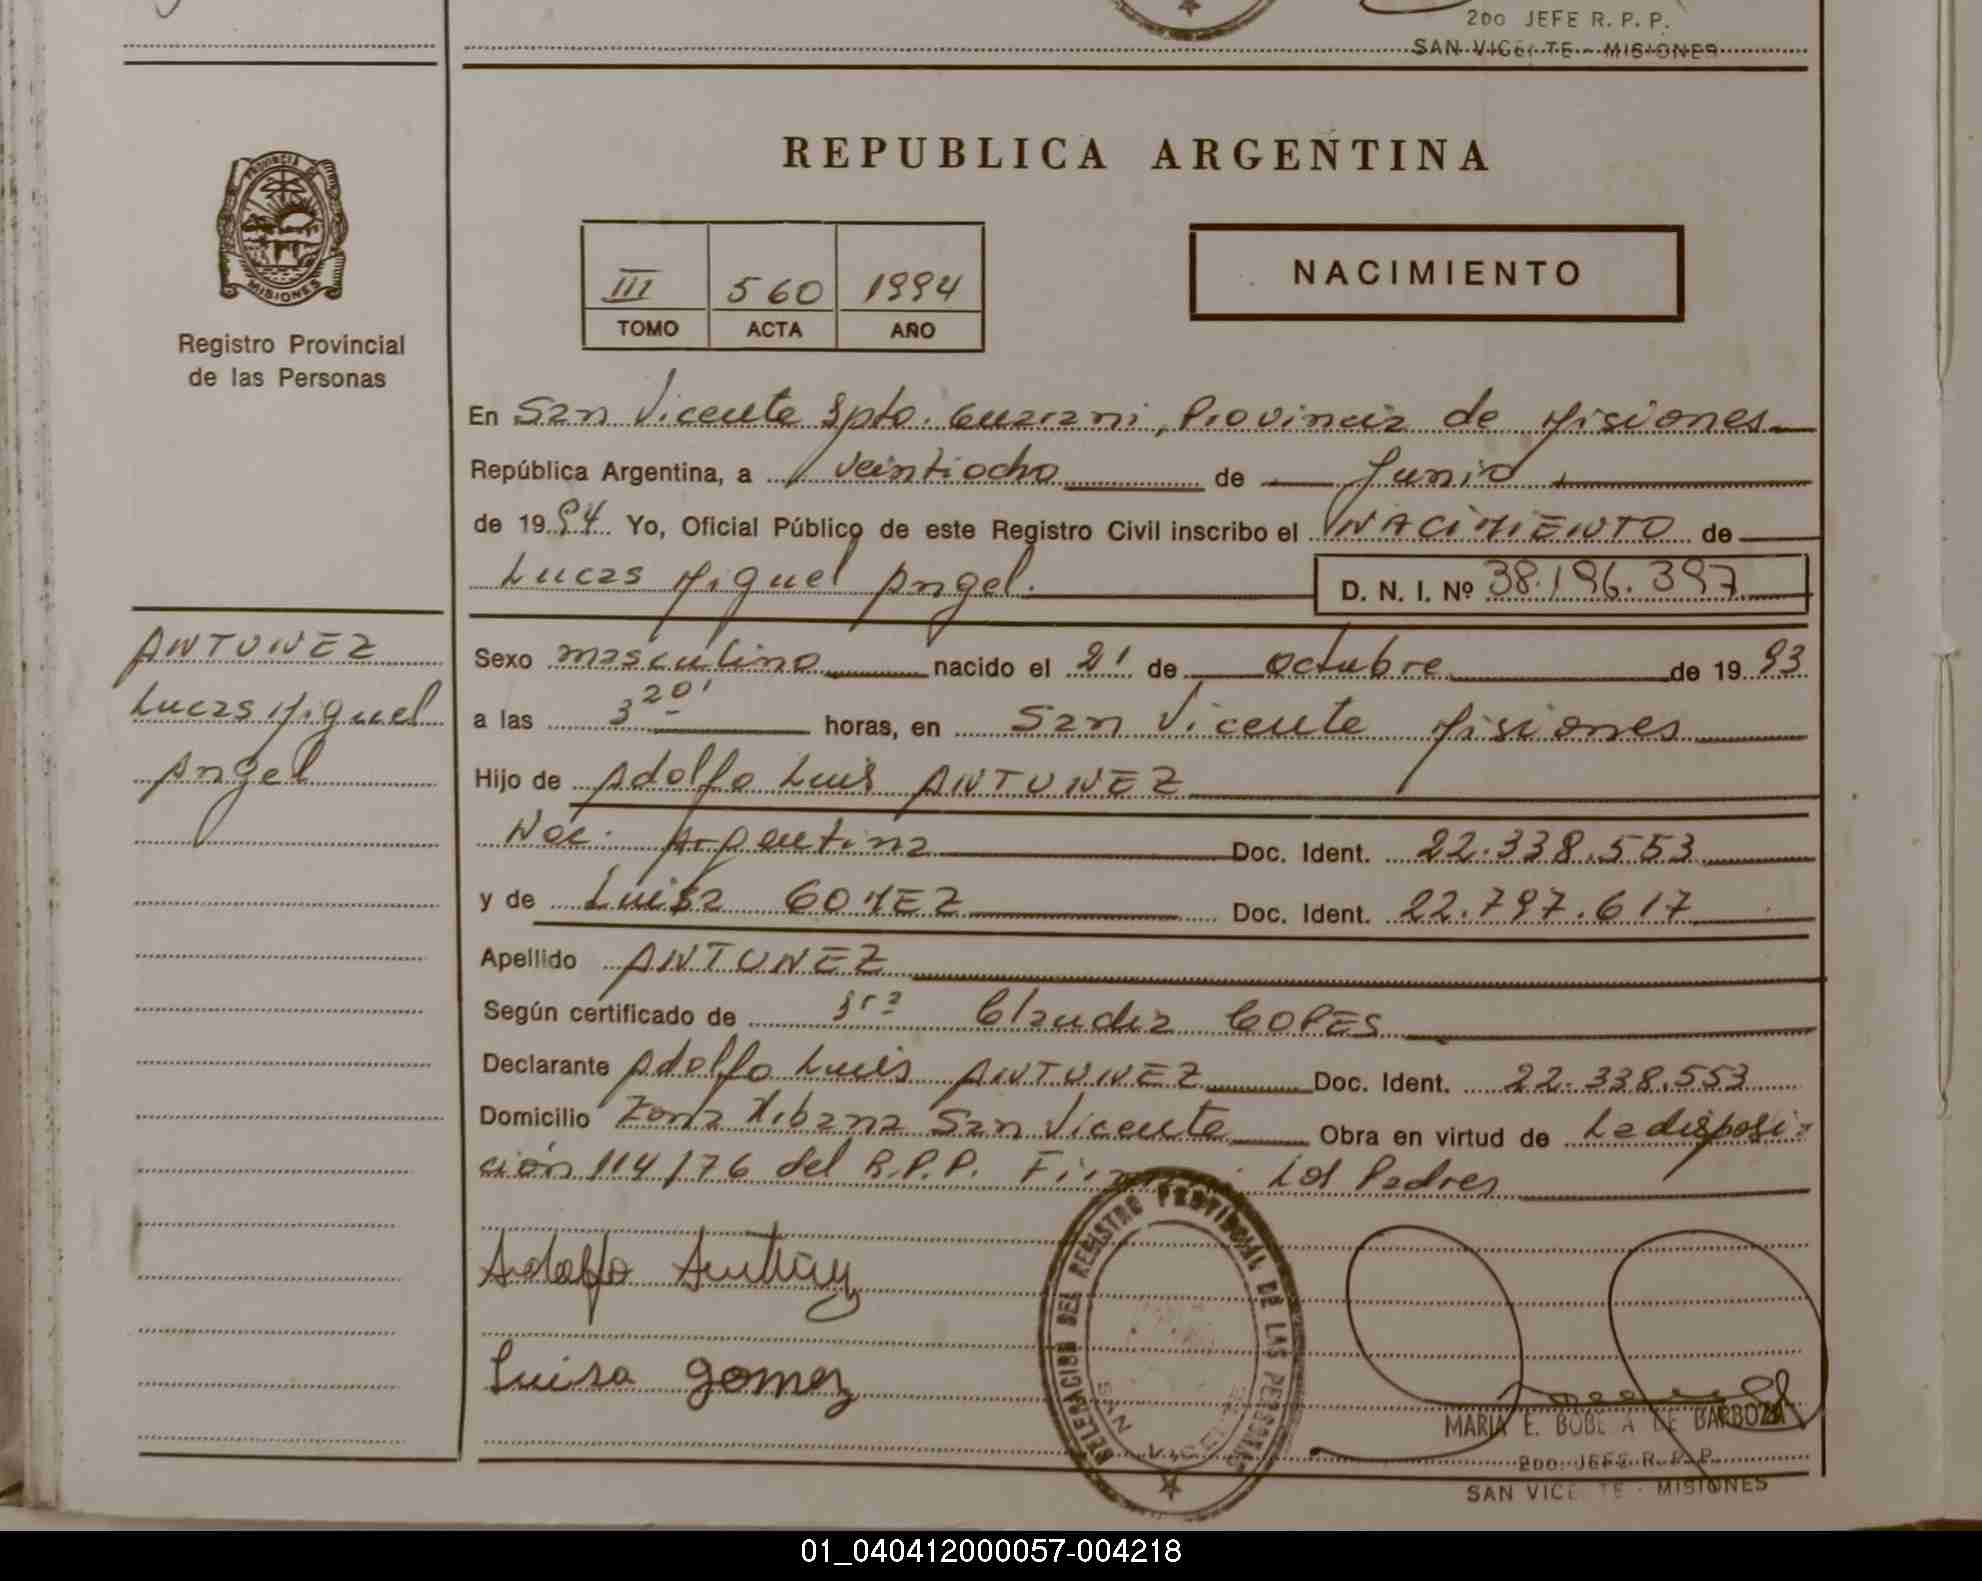 2DO JEFE R. P. P.
SAN VICENTE - MISIONES
REPUBLICA ARGENTINA
PROVINCIA DE
MISIONES
III 560 1994
TOMO ACTA AÑO
NACIMIENTO
Registro Provincial
de las Personas
En San Vicente Dpto. Guarani, Provincia de Misiones
República Argentina, a veintiocho de Junio
de 1994 Yo, Oficial Público de este Registro Civil inscribo el NACIMIENTO de
Lucas Miguel Angel. D. N. I. Nº 38.196.397
ANTUNEZ
Lucas Miguel
Angel
Sexo masculino nacido el 21 de octubre de 1993
a las 3 20' horas, en San Vicente Misiones
Hijo de Adolfo Luis ANTUNEZ
Nac. Argentina Doc. Ident. 22.338.553
y de Luisa GOMEZ Doc. Ident. 22.797.617
Apellido ANTUNEZ
Según certificado de Claudia COPES
Declarante Adolfo Luis ANTUNEZ Doc. Ident. 22.338.553
Domicilio Zona Urbana San Vicente Obra en virtud de La disposi-
ción 114/76 del R.P.P. Los Padres
Adolfo
Luisa gomez
DELEGACION DEL REGISTRO PROVINCIAL DE LAS PERSONAS
SAN VICENTE
MARIA E. DE BARBOZA
2DO. JEFE R. P. P.
SAN VICENTE - MISIONES
01_040412000057-004218